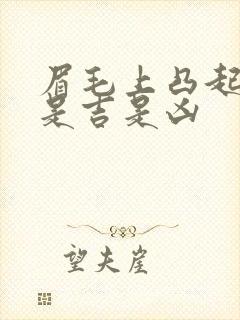 眉毛上凸起
是吉是凶
望夫崖